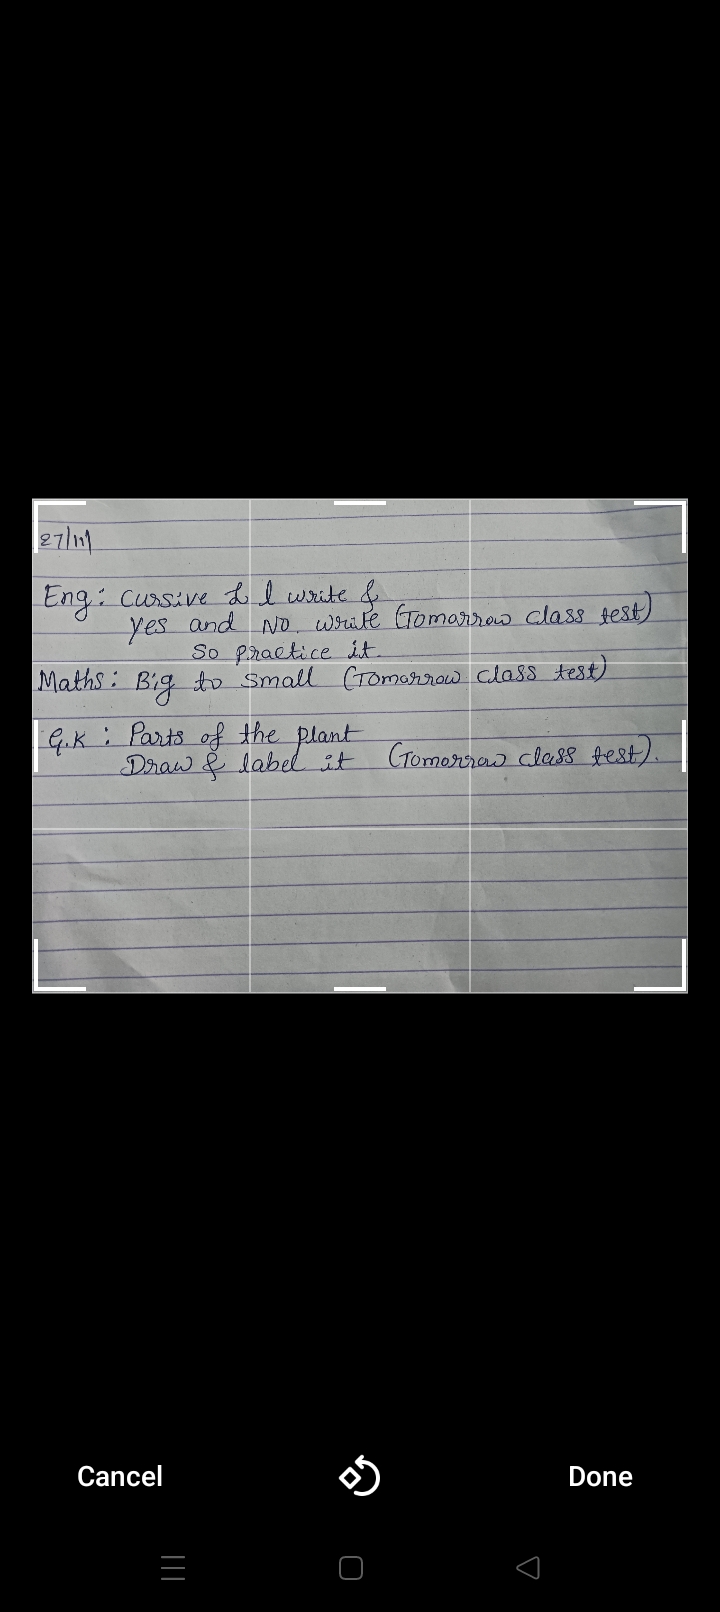 27/11
Eng: Cursive L l write &
Yes and No. write (Tomorrow class test)
So practice it.
Maths: Big to small (Tomorrow class test)
G.K : Parts of the plant
Draw & label it (Tomorrow class test).
Cancel
Done